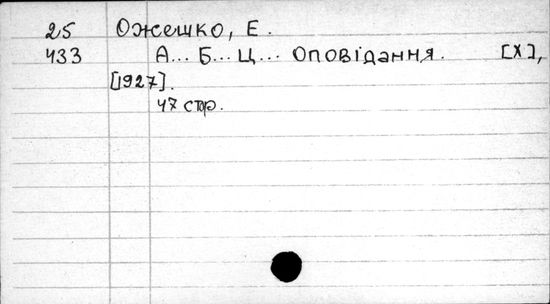 25 Ожешко, Е.
433 А... Б... Ц... Оповідання. [Х],
[1927].
47 стор.